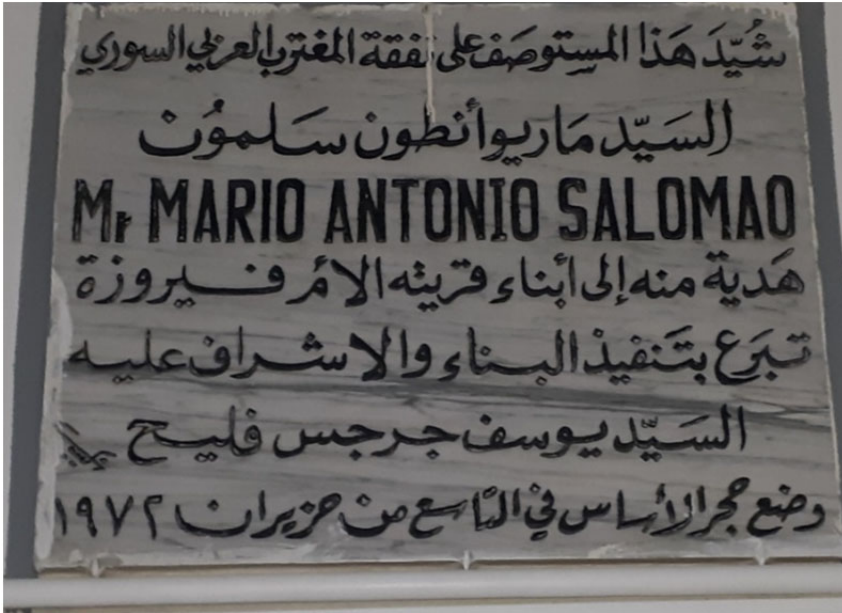 شُيّدَ هَذا المستوصَف على نفقة المغترب العربي السوري
السَيّد مَاريو أنطون سَلمُون
Mr MARIO ANTONIO SALOMAO
هَدية منه إلى أبناء قريته الأم فيروزة
تبَرع بتَنفيذ البناء والاشراف عليه
السَيّد يوسف جرجس فليح
وضع حجر الأساس في التاسع من حزيران ١٩٧٢